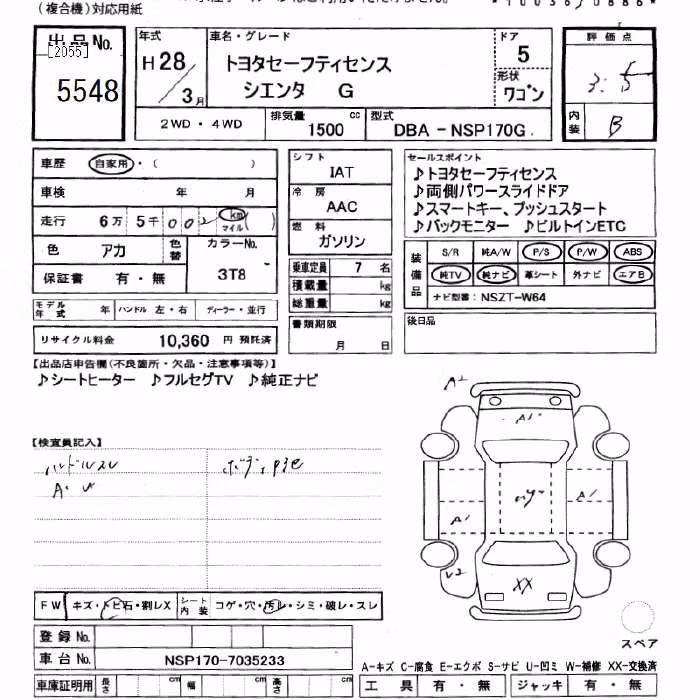 (複合機)対応用紙
出品No.
[2055]
5548
年式
H28
3月
車名・グレード
トヨタセーフティセンス
シエンタ G
ドア
5
形状
ワゴン
評価点
3.5
内装
B
2WD・4WD
排気量
1500 cc
型式
DBA-NSP170G
車歴 自家用・( )
車検 年 月
走行 6万 5千 002 km マイル ( )
色 アカ 色替
カラーNo.
3T8
保証書 有・無
モデル年式 年 ハンドル 左・右 ディーラー・並行
リサイクル料金 10,360 円 預託済
シフト
IAT
冷房
AAC
燃料
ガソリン
乗車定員 7 名
積載量 kg
総重量 kg
書類期限
月 日
セールスポイント
♪トヨタセーフティセンス
♪両側パワースライドドア
♪スマートキー、プッシュスタート
♪バックモニター ♪ビルトインETC
装備品
S/R 純A/W P/S P/W ABS
純TV 純ナビ 革シート 外ナビ エアB
ナビ型番:NSZT-W64
後日品
【出品店申告欄(不良箇所・欠品・注意事項等)】
♪シートヒーター ♪フルセグTV ♪純正ナビ
【検査員記入】
ハンドルスレ
A2
A1
A1
A1
U2
XX
FW キズ・トビ石・割レX
シート内装 コゲ・穴・汚レ・シミ・破レ・スレ
登録No.
車台No. NSP170-7035233
車庫証明用 長さ cm 幅 cm 高さ cm
スペア
A-キズ C-腐食 E-エクボ S-サビ U-凹ミ W-補修 XX-交換済
工具 有・無 ジャッキ 有・無